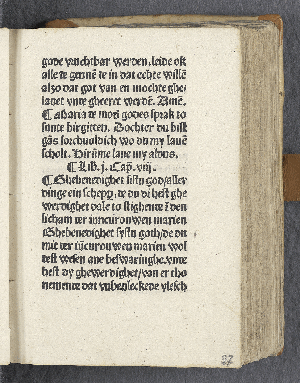 gode vruchtbar werden, leide ok
alle te genne te in dat echte wille
also dat got van en mochte ghe
lauet vnte gheeret werde. Ame.
Maria te moder godes sprak to
sunte birgitten. Dochter du bist
gas sorchuoldich wo du my laue
scholt. Hir ume laue my aldus.
Lib. j. Cap. viij.
Ghebenedighet sistu god aller
dinge ein schepper, te du di hest ghe
werdighet dale to stighente i den
licham ter iuncurouwen marien
Ghebenedighet systu goth/de du
mit ter iucurouwen marien wol
test wesen ane beswaringhe. vnte
hest dy ghewerdighet/van er tho
nemente dat vnbevleckede vlesch